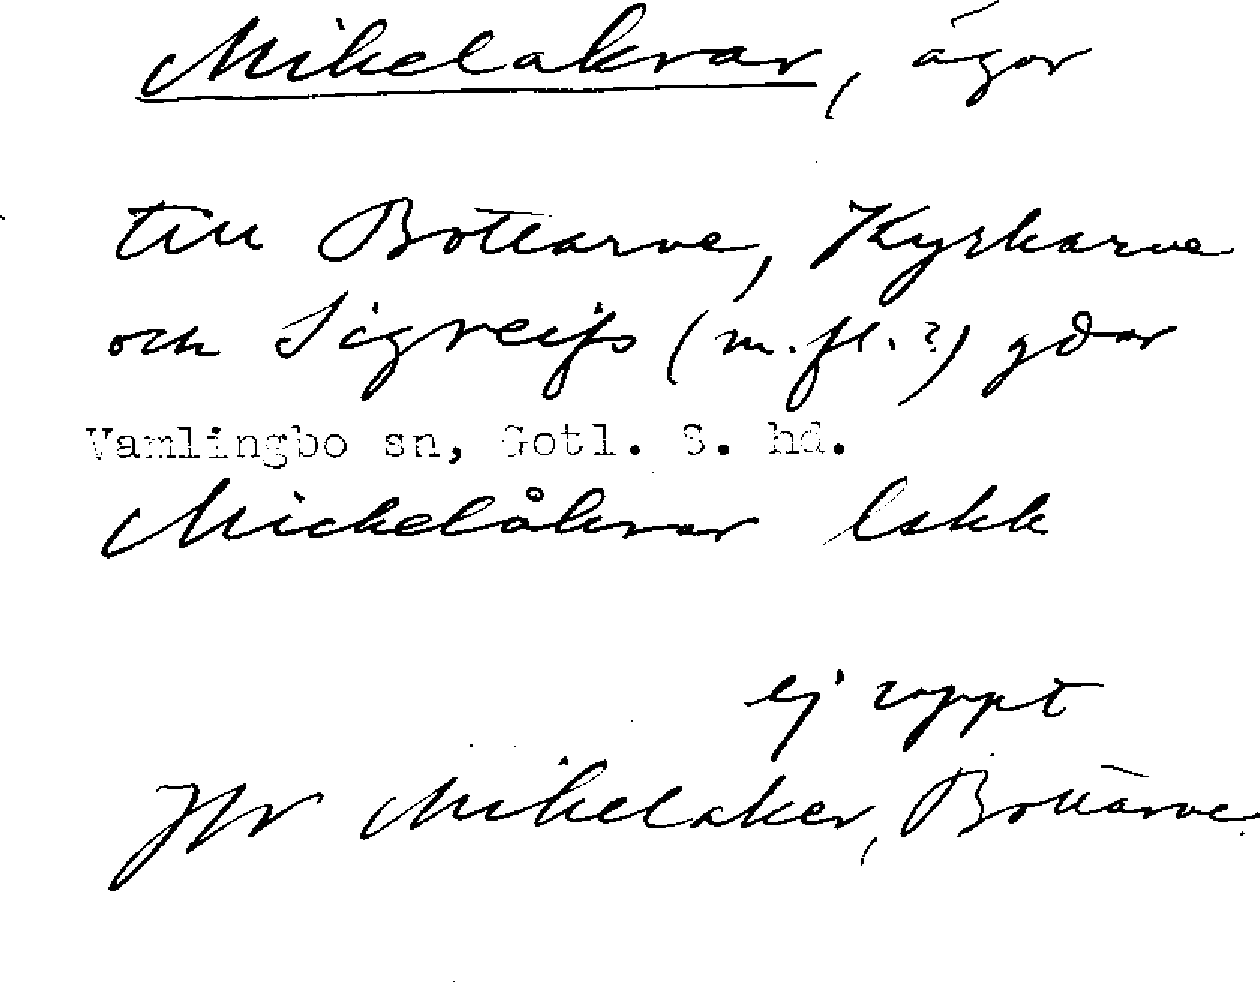 Mikelakrar, ägor
till Bottarve, Kyrkarve
och Sigreifs (m.fl.?) gdar
Vamlingbo sn, Gotl. S. hd.
Mickelåkrar Lskk
ej uppt
Jfr Mikelaker, Bottarve